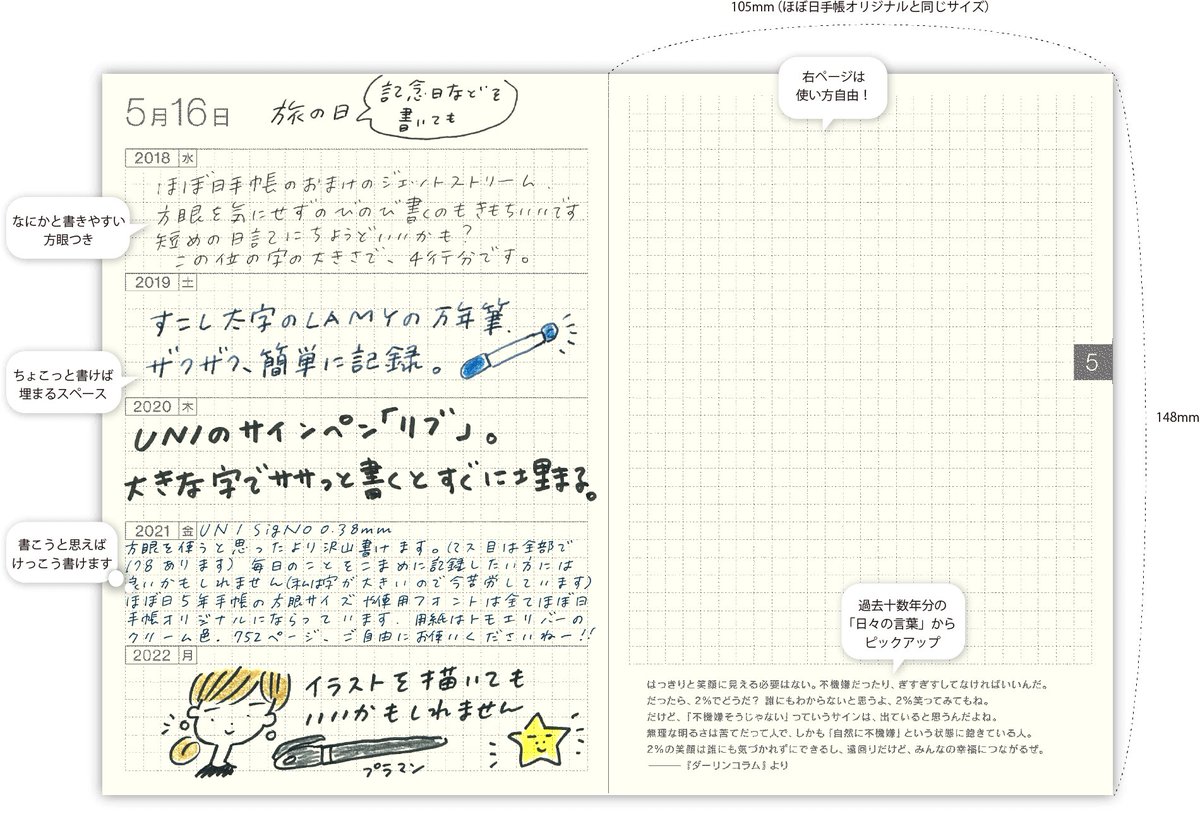 105mm（ほぼ日手帳オリジナルと同じサイズ）
右ページは
使い方自由！
5月16日 旅の日
記念日などを
書いても
2018 水
ほぼ日手帳のおまけのジェットストリーム.
方眼を気にせずのびのび書くのもきもちいいです
短めの日記にちょうどいいかも？
この位の字の大きさで、4行分です。
なにかと書きやすい
方眼つき
2019 土
すこし太字のLAMYの万年筆.
ザクザク、簡単に記録。
ちょこっと書けば
埋まるスペース
2020 木
UNIのサインペン「リブ」。
大きな字でササっと書くとすぐに埋まる。
2021 金 UNI SigNO 0.38mm
方眼を使うと思ったより沢山書けます。（マス目は全部で
178あります） 毎日のことをこまめに記録したい方には
良いかもしれません（私は字が大きいので今苦労しています）
ほぼ日5年手帳の方眼サイズや使用フォントは全てほぼ日
手帳オリジナルにならっています. 用紙はトモエリバーの
クリーム色. 752ページ、ご自由にお使いくださいねー!!
書こうと思えば
けっこう書けます
2022 月
イラストを描いても
いいかもしれません
プラマン
5
148mm
過去十数年分の
「日々の言葉」から
ピックアップ
はっきりと笑顔に見える必要はない。不機嫌だったり、ぎすぎすしてなければいいんだ。
だったら、2％でどうだ？ 誰にもわからないと思うよ、2％笑ってみてもね。
だけど、「不機嫌そうじゃない」っていうサインは、出ていると思うんだよね。
無理な明るさは苦手だって人で、しかも「自然に不機嫌」という状態に飽きている人。
2％の笑顔は誰にも気づかれずにできるし、遠回りだけど、みんなの幸福につながるぜ。
───『ダーリンコラム』より